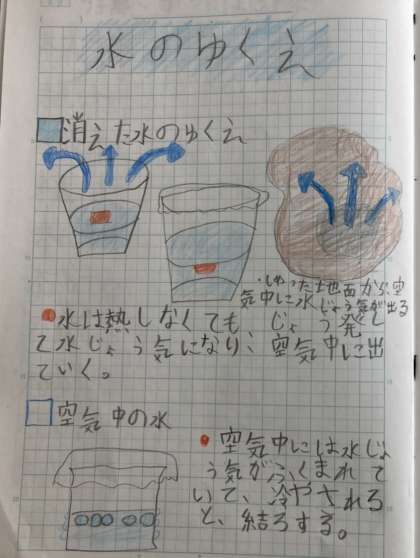 水のゆくえ
消えた水のゆくえ
・しめった地面から、空
気中に水じょう気が出る
水は熱しなくても、じょう発し
て水じょう気になり、空気中に出
ていく。
空気中の水
空気中には水じょ
う気がふくまれて
いて、冷やされる
と、結ろする。